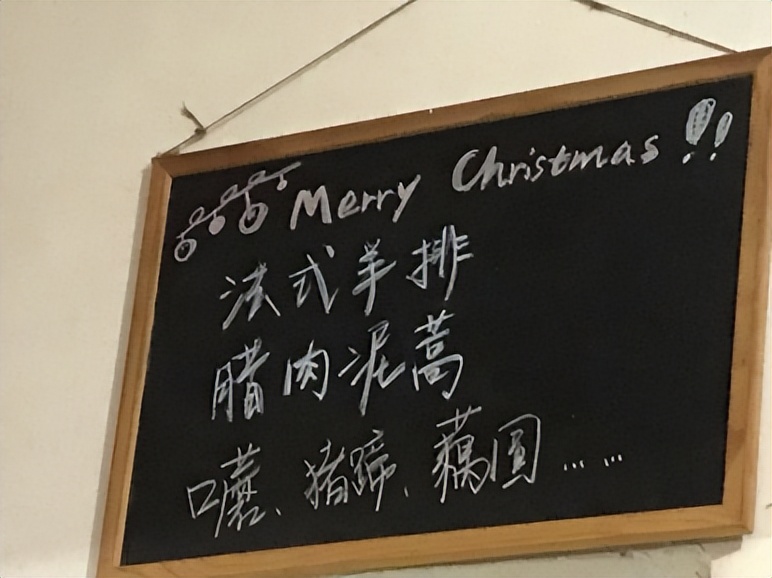 Merry Christmas !!
法式羊排
腊肉泥蒿
口蘑、猪蹄、藕圆……